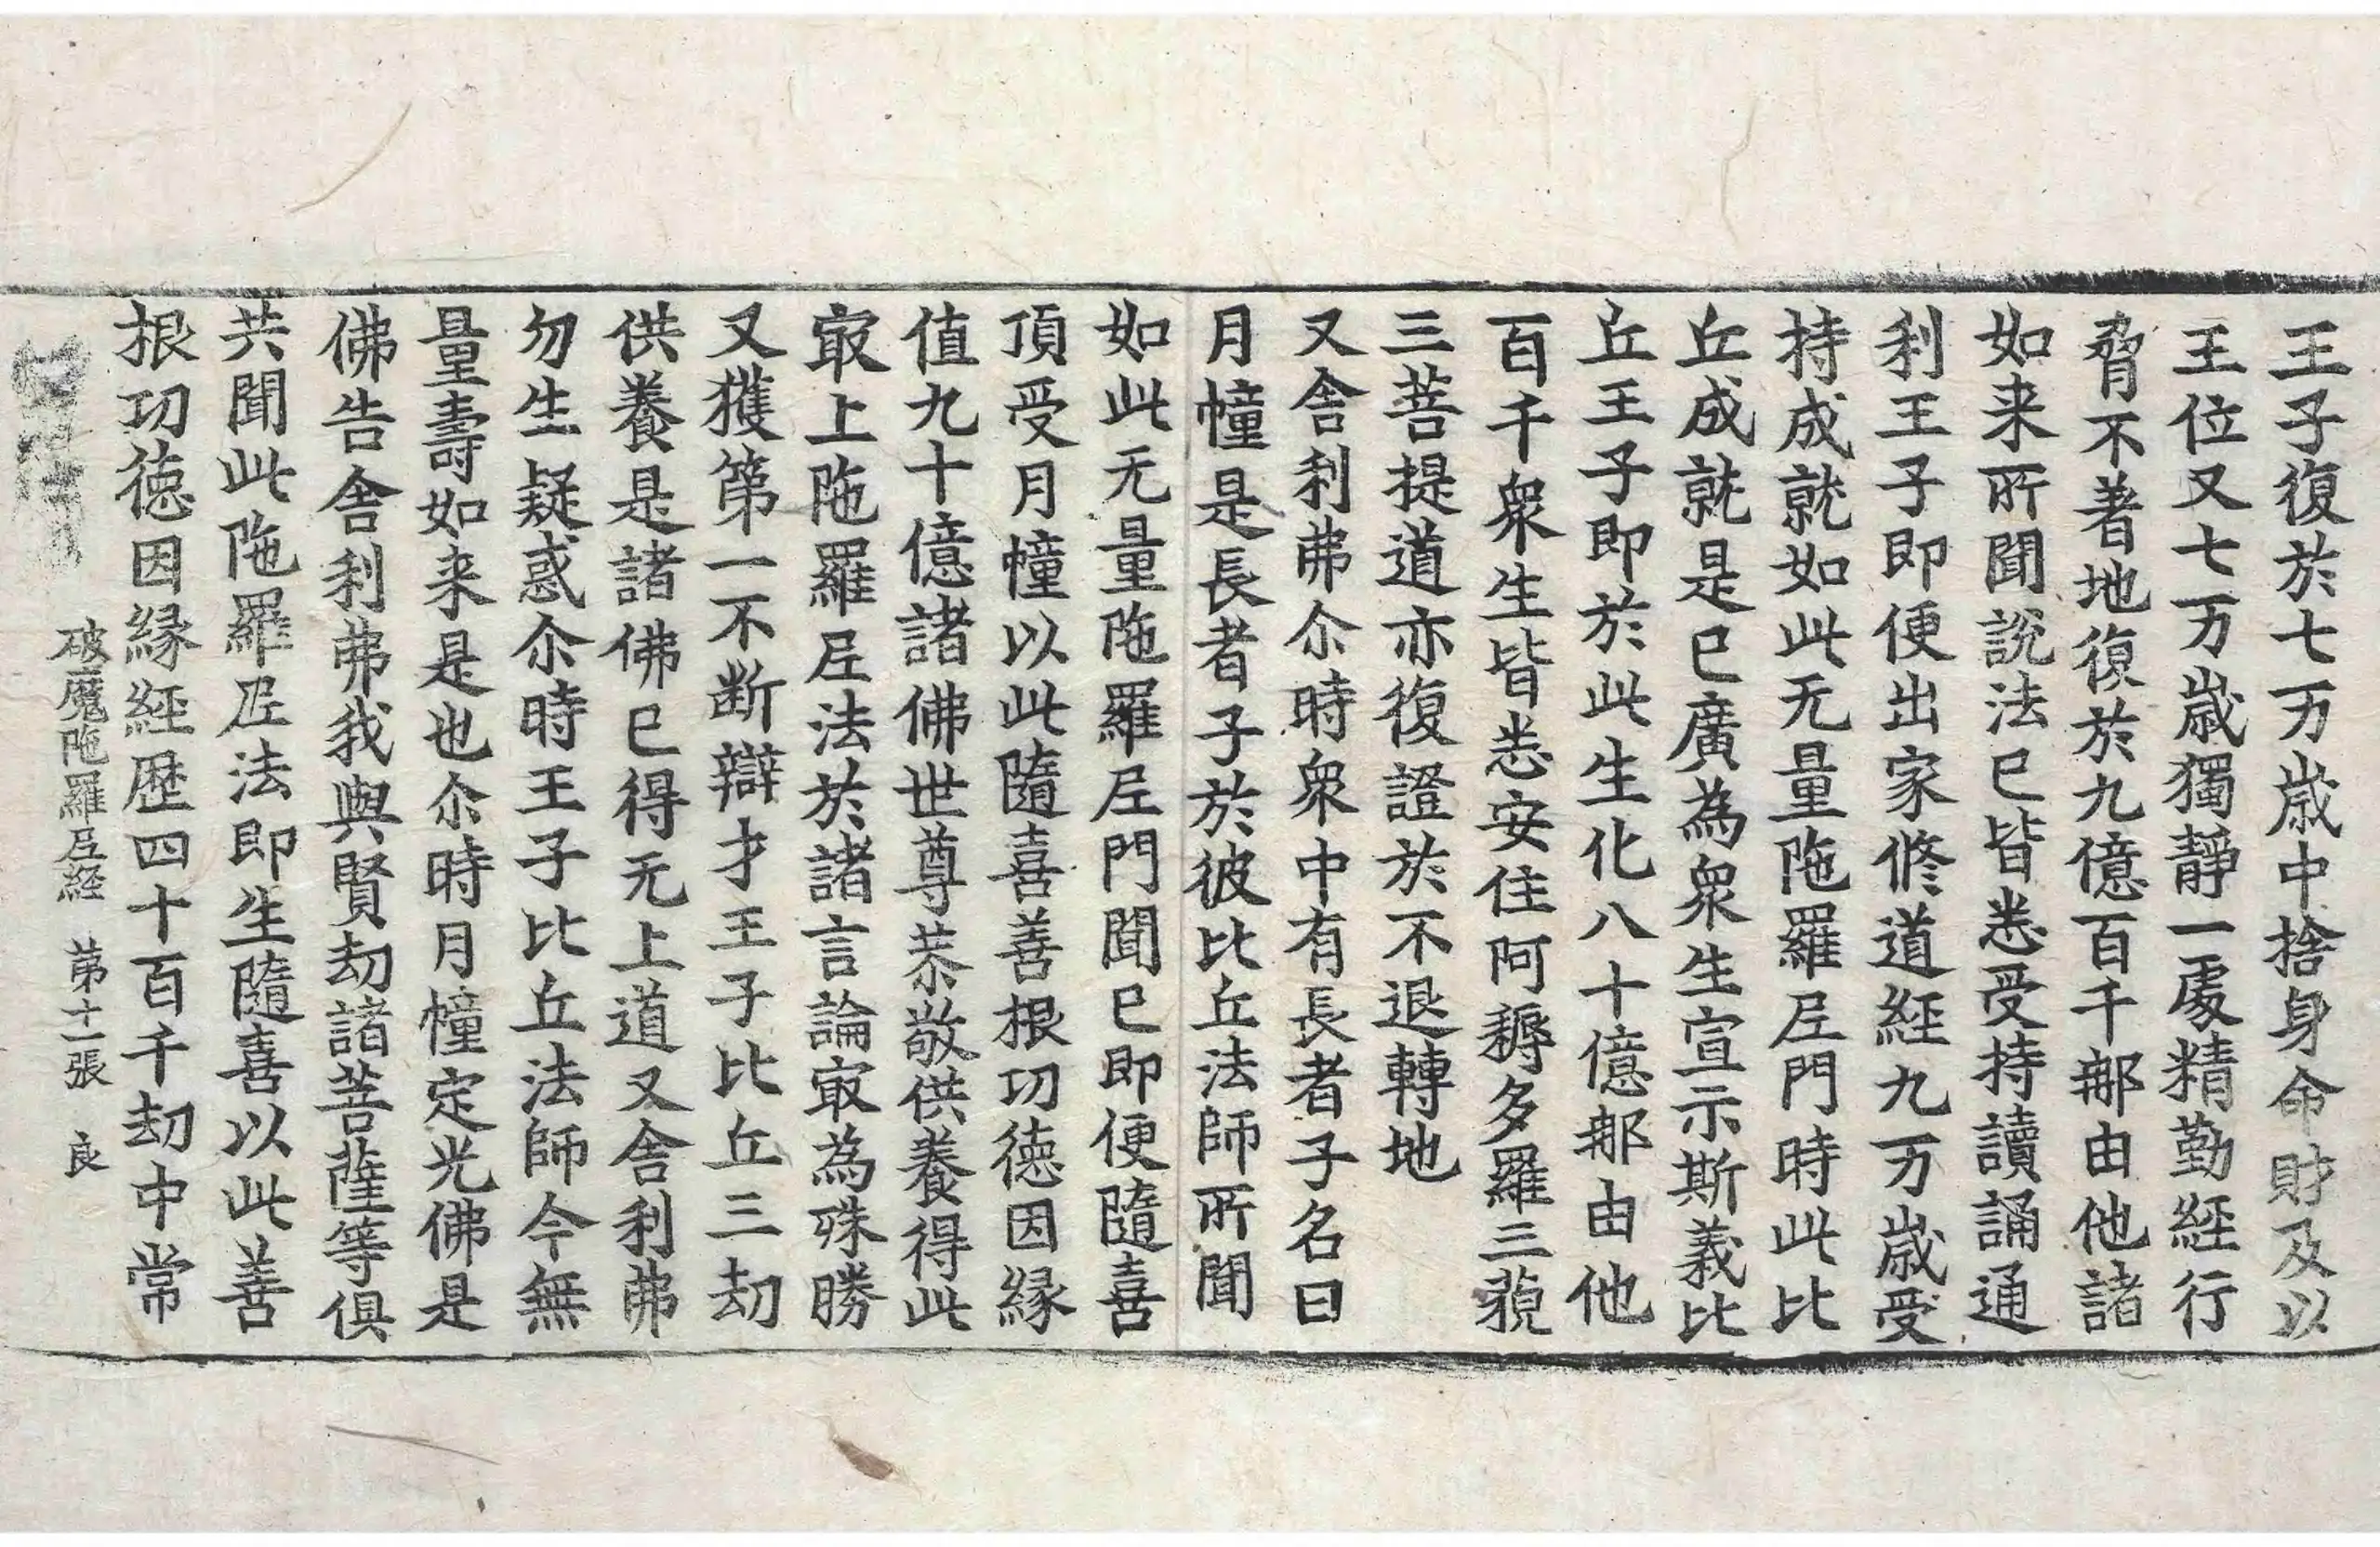 王子復於七万歲中捨身命財及以
王位又七万歲獨靜一處精勤經行
脅不著地復於九億百千那由他諸
如来所聞說法已皆悉受持讀誦通
利王子即便出家修道經九万歲受
持成就如此无量陁羅尼門時此比
丘成就是已廣為衆生宣示斯義比
丘王子即於此生化八十億那由他
百千衆生皆悉安住阿耨多羅三藐
三菩提道亦復證於不退轉地
又舍利弗尒時衆中有長者子名曰
月幢是長者子於彼比丘法師所聞
如此无量陁羅尼門聞已即便隨喜
頂受月幢以此隨喜善根功德因緣
值九十億諸佛世尊恭敬供養得此
冣上陁羅尼法於諸言論冣為殊勝
又獲第一不斷辯才王子比丘三劫
供養是諸佛已得无上道又舍利弗
勿生疑惑尒時王子比丘法師今無
量壽如来是也尒時月幢定光佛是
佛告舍利弗我與賢劫諸菩薩等俱
共聞此陁羅尼法即生隨喜以此善
根功德因緣經歷四十百千劫中常
破魔陁羅尼經 苐十一張 良